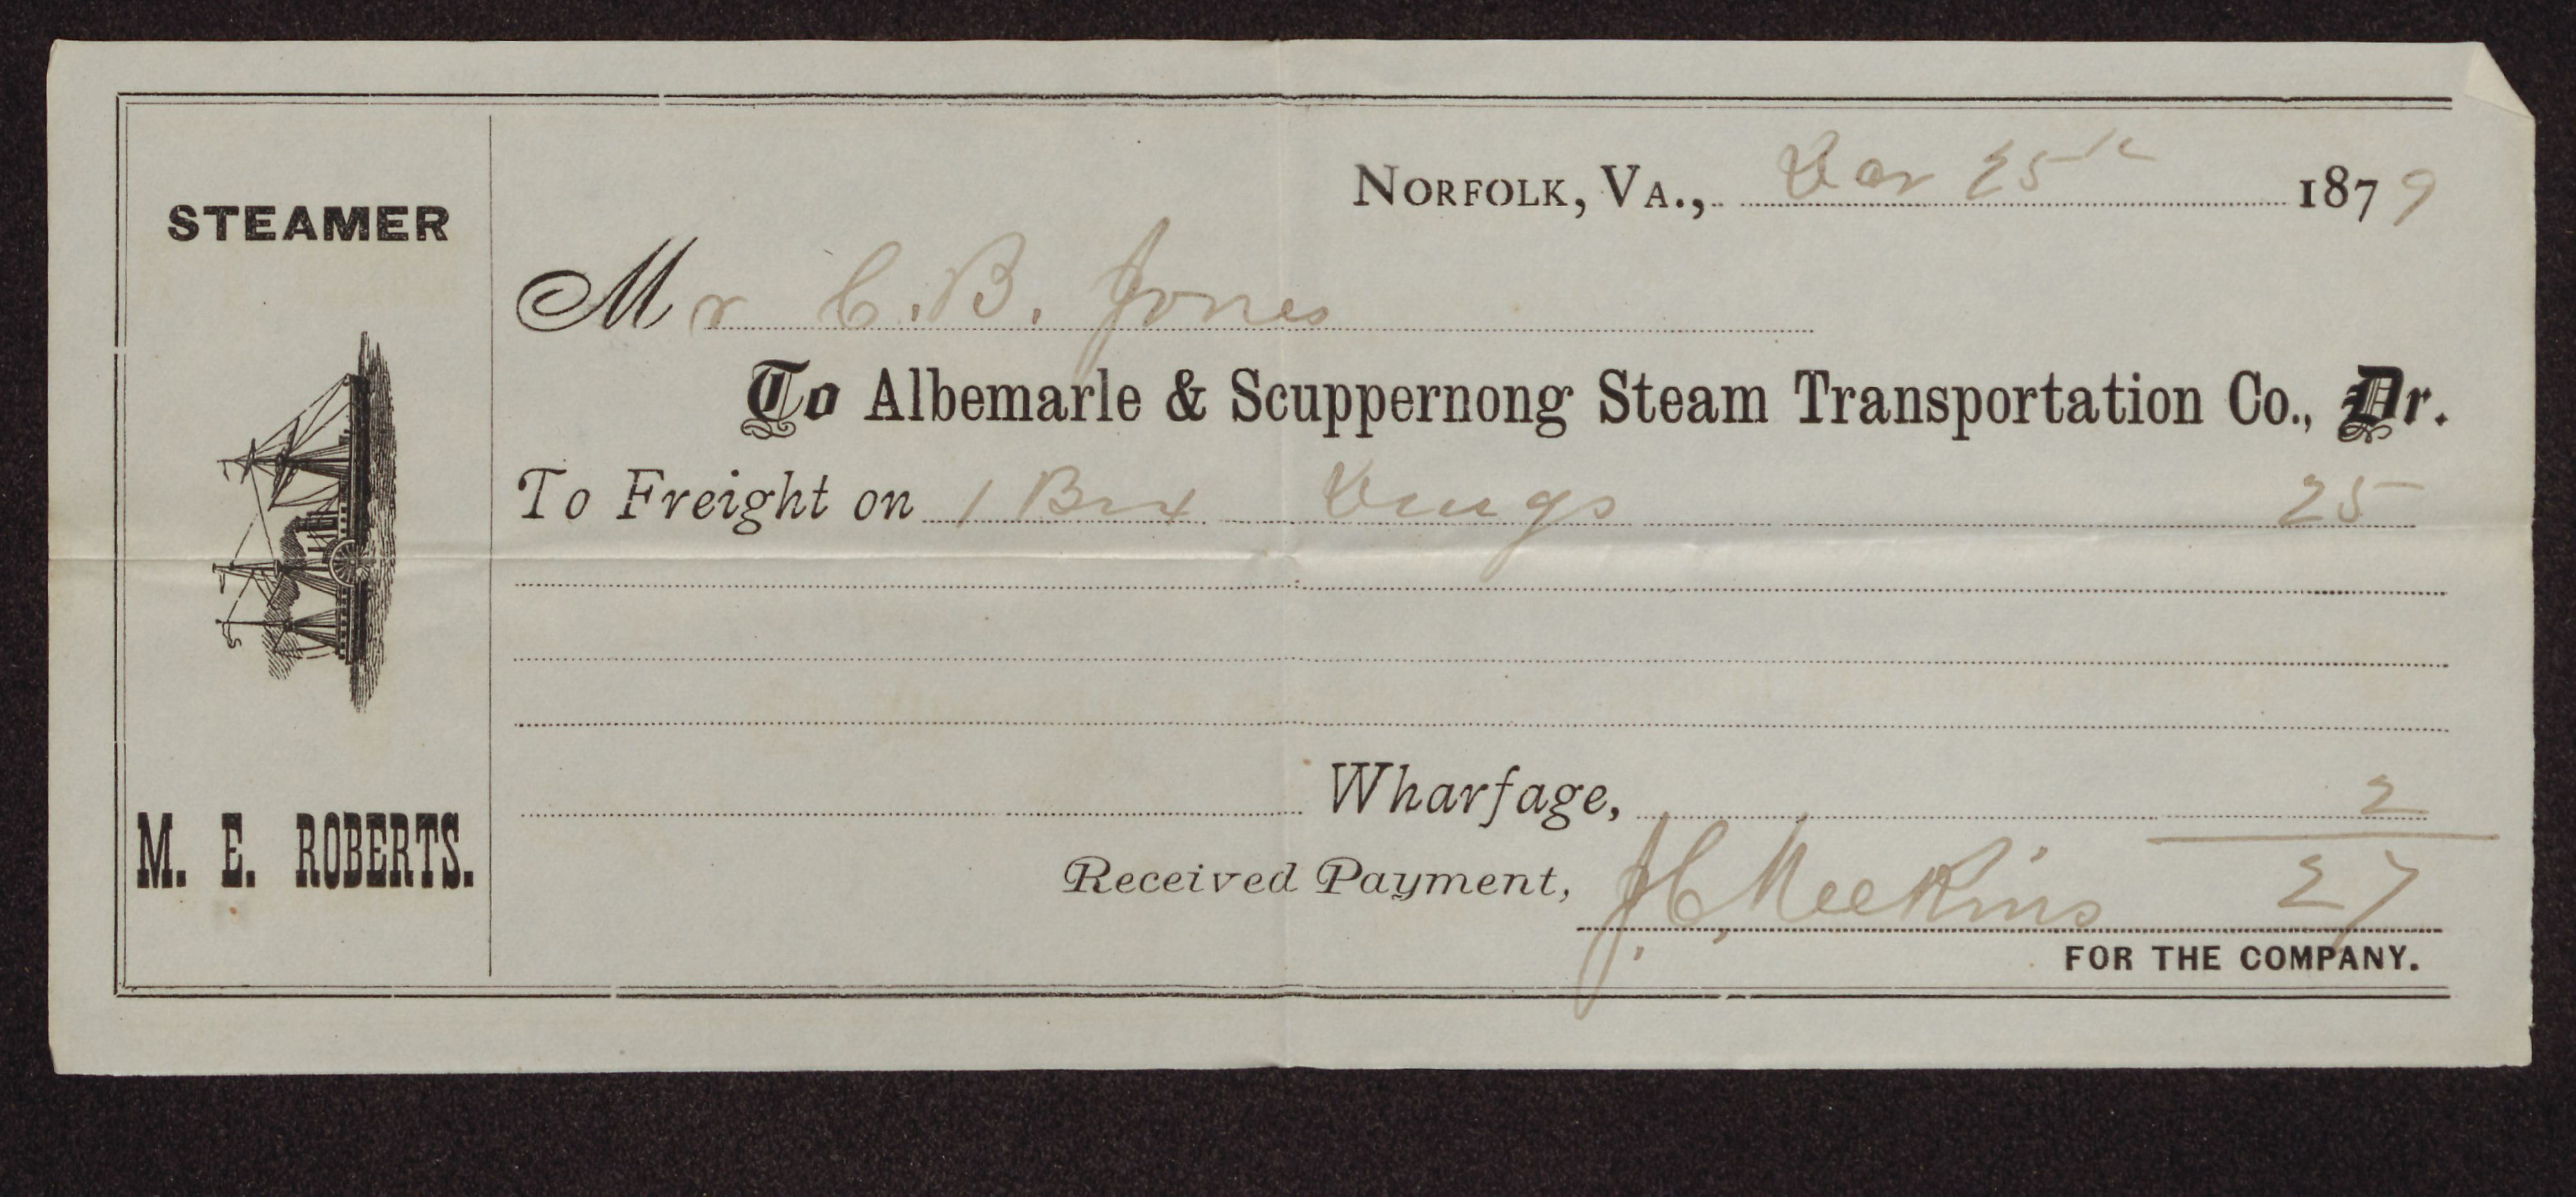 STEAMER
M. E. ROBERTS.
NORFOLK, VA., 25th 1879
Mr C. B. Jones
To Albemarle & Scuppernong Steam Transportation Co., Dr.
To Freight on 1 Box Drugs 25
Wharfage, 2
Received Payment, J. C. Meekins 27
FOR THE COMPANY.